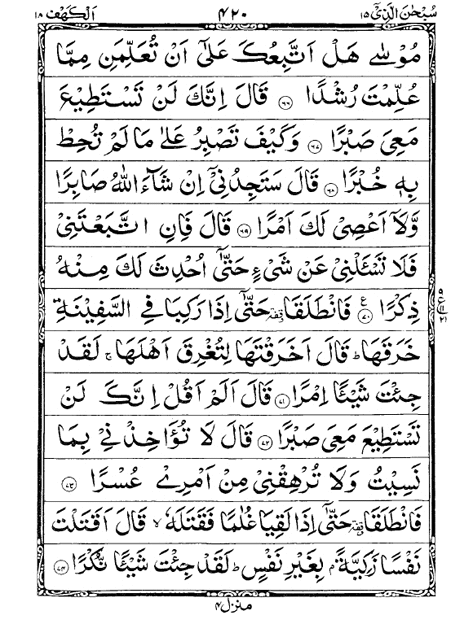 سُبۡحٰنَ الَّذِیۡۤ ۱۵ ۴۲۰ اَلۡکَهۡف ۱۸
مُوۡسٰی هَلۡ اَتَّبِعُکَ عَلٰۤی اَنۡ تُعَلِّمَنِ مِمَّا
عُلِّمۡتَ رُشۡدًا ﴿۶۶﴾ قَالَ اِنَّکَ لَنۡ تَسۡتَطِیۡعَ
مَعِیَ صَبۡرًا ﴿۶۷﴾ وَکَیۡفَ تَصۡبِرُ عَلٰی مَا لَمۡ تُحِطۡ
بِهٖ خُبۡرًا ﴿۶۸﴾ قَالَ سَتَجِدُنِیۡۤ اِنۡ شَآءَ اللّٰهُ صَابِرًا
وَّلَاۤ اَعۡصِیۡ لَکَ اَمۡرًا ﴿۶۹﴾ قَالَ فَاِنِ اتَّبَعۡتَنِیۡ
فَلَا تَسۡـَٔلۡنِیۡ عَنۡ شَیۡءٍ حَتّٰۤی اُحۡدِثَ لَکَ مِنۡهُ
ذِکۡرًا ﴿۷۰﴾ ع فَانۡطَلَقَا ٝ حَتّٰۤی اِذَا رَکِبَا فِی السَّفِیۡنَةِ
خَرَقَهَا ؕ قَالَ اَخَرَقۡتَهَا لِتُغۡرِقَ اَهۡلَهَا ۚ لَقَدۡ
جِئۡتَ شَیۡئًا اِمۡرًا ﴿۷۱﴾ قَالَ اَلَمۡ اَقُلۡ اِنَّکَ لَنۡ
تَسۡتَطِیۡعَ مَعِیَ صَبۡرًا ﴿۷۲﴾ قَالَ لَا تُؤَاخِذۡنِیۡ بِمَا
نَسِیۡتُ وَلَا تُرۡهِقۡنِیۡ مِنۡ اَمۡرِیۡ عُسۡرًا ﴿۷۳﴾
فَانۡطَلَقَا ٝ حَتّٰۤی اِذَا لَقِیَا غُلٰمًا فَقَتَلَهٗ ۙ قَالَ اَقَتَلۡتَ
نَفۡسًا زَکِیَّةًۢ بِغَیۡرِ نَفۡسٍ ؕ لَقَدۡ جِئۡتَ شَیۡئًا نُّکۡرًا ﴿۷۴﴾
منزل ۴